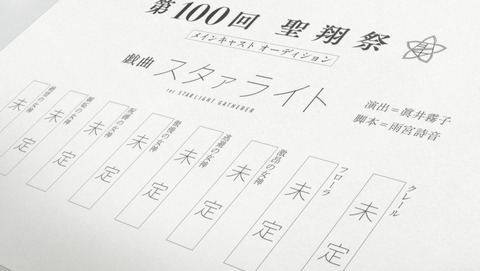 第100回 聖翔祭
メインキャスト オーディション
戯曲 スタァライト
THE STARLIGHT GATHERER
演出=眞井霧子
脚本=雨宮詩音
クレール
未定
フローラ
未定
激昂の女神
未定
逃避の女神
未定
傲慢の女神
未定
呪縛の女神
未定
の女神
未定
の女神
未定